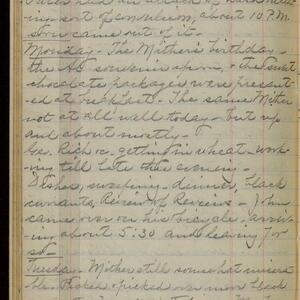 ing sort of convulsion, about 10 P.M.
soon came out of it.
Monday - The Mother's birthday -
the souvenir spoon, + the Sweet
chocolate package were present-
ed at breakfast. The same Mother
not at all well today - but up
and about mostly -
Geo. Rich is getting in wheat - work-
ing till late the evening -
Dishes, sweeping - dinner, black
currants, Review of Reviews - John
came over on his bicycle - arriv-
ing about 5:30 and leaving for
Tuesday - Mother still somewhat misera-
ble. Baked + picked over more black